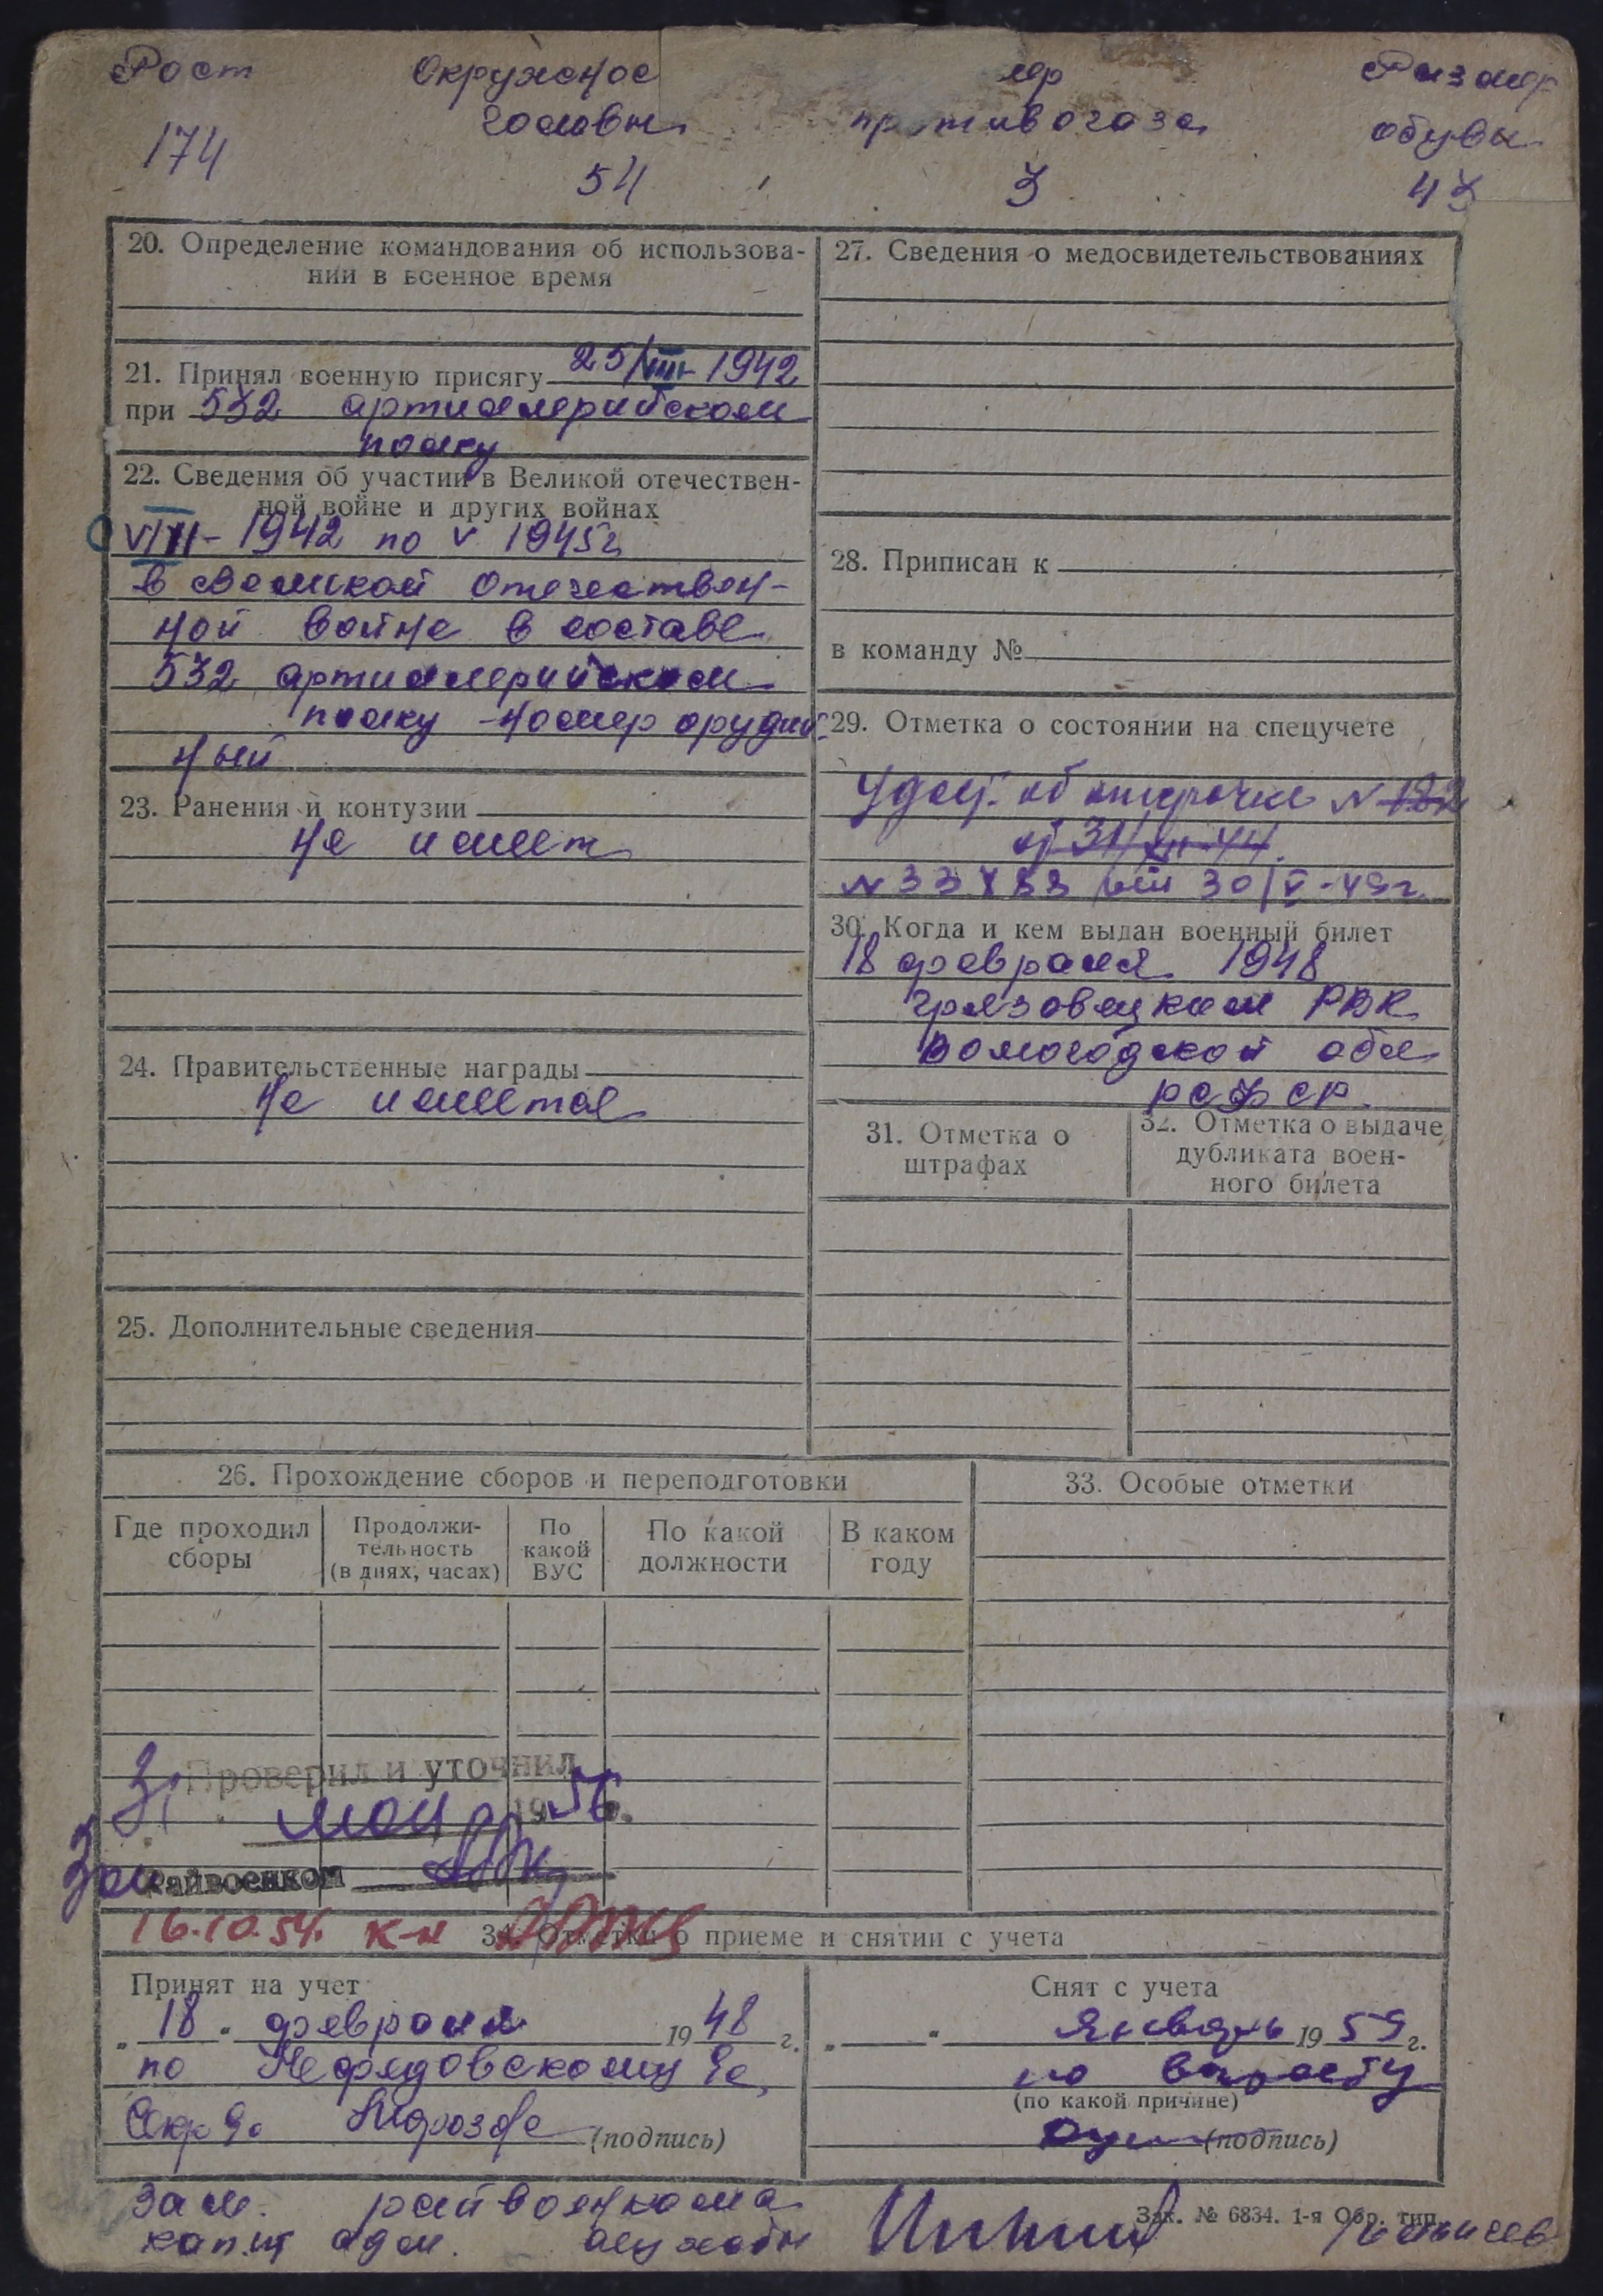 Рост Окружнос мер Размер
головы противогаза обувы
174 54 3 43
20. Определение командования об использова-
нии в военное время
21. Принял военную присягу 25/VIII-1942
при 532 артиллерийском
полку
22. Сведения об участии в Великой отечествен-
ной войне и других войнах
VIII-1942 по V 1945г
в Великой Отечествен-
ной войне в составе
532 артиллерийском
полку -номер орудий
ный
23. Ранения и контузии
не имеет
24. Правительственные награды
Не имеет
25. Дополнительные сведения
27. Сведения о медосвидетельствованиях
28. Приписан к
в команду №
29. Отметка о состоянии на спецучете
Удост. об отсрочке N 122
от 31/XII-44
30/V-49г.
30. Когда и кем выдан военный билет
18 февраля 1948
Грязовецким РВК
Вологодской обл
РСФСР.
31. Отметка о
штрафах
32. Отметка о выдаче
дубликата воен-
ного билета
26. Прохождение сборов и переподготовки
Где проходил
сборы
Продолжи-
тельность
(в днях, часах)
По
какой
ВУС
По какой
должности
В каком
году
33. Особые отметки
Проверил и уточнил
мая 1956.
Зам Райвоенком
16.10.54. к-н
34. Отметки о приеме и снятии с учета
Принят на учет
„18" февраля 1948 г.
по Нефедовскому
(подпись)
Снят с учета
„ " Январь 1959 г.
по возрасту
(по какой причине)
(подпись)
зам. райвоенкома
капит адм. службы
Зак. № 6834. 1-я Обр. тип.